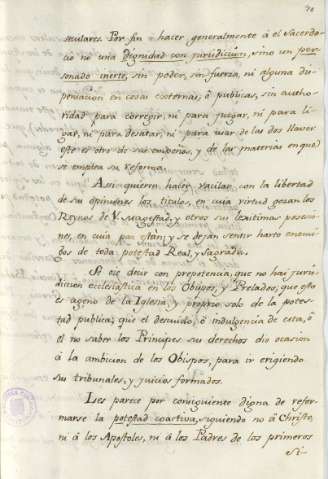 70
seculares. Por fin = hacer generalmente â el Sacerdo-
cio ni una Dignidad con jurisdiccion, sino un per-
sonado inerte, sin poder, sin fuerza, ni alguna dis-
pensacion en cosas externas, ô publicas, sin autho-
ridad para corregir, ni para juzgar, ni para li-
gar, ni para desatar, ni para usar de las dos llaves
este es otro de sus empeños, y de las materias en que
se emplea su reforma.
Asi quieren hacer vacilar con la libertad
de sus opiniones los titulos, en cuia virtud gozan los
Reynos de V. Magestad, y otros sus lexitimos poseso-
res, en cuia paz y se dejan sentir harto enemi-
gos de toda potestad Real, y Sagrada.
Si ese decir con prepotencia, que no hay juris-
diccion eclesiastica en los Obispos, y Prelados, que esto
es ageno de la Iglesia, y proprio solo de la potes-
tad publica; que el descuido, ô indulgencia de esta, ô
el no saber los Principes sus derechos dio ocasion
â la ambicion de los Obispos, para ir erigiendo
sus tribunales, y juicios formados.
Les parece por consiguiente digna de refor-
marse la potestad coactiva, siguiendo no â Christo,
ni â los Apostoles, ni â los Padres de los primeros
si-